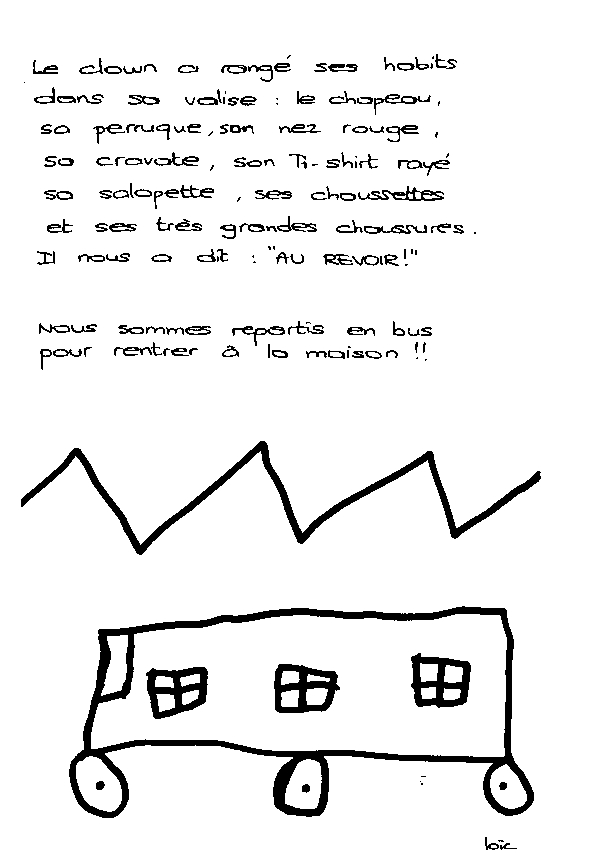 Le clown a rangé ses habits
dans sa valise : le chapeau,
sa perruque, son nez rouge,
sa cravate, son Ti-shirt rayé
sa salopette , ses choussettes
et ses très grandes chaussures.
Il nous a dit : "AU REVOIR!"
Nous sommes repartis en bus
pour rentrer à la maison !!
loïc